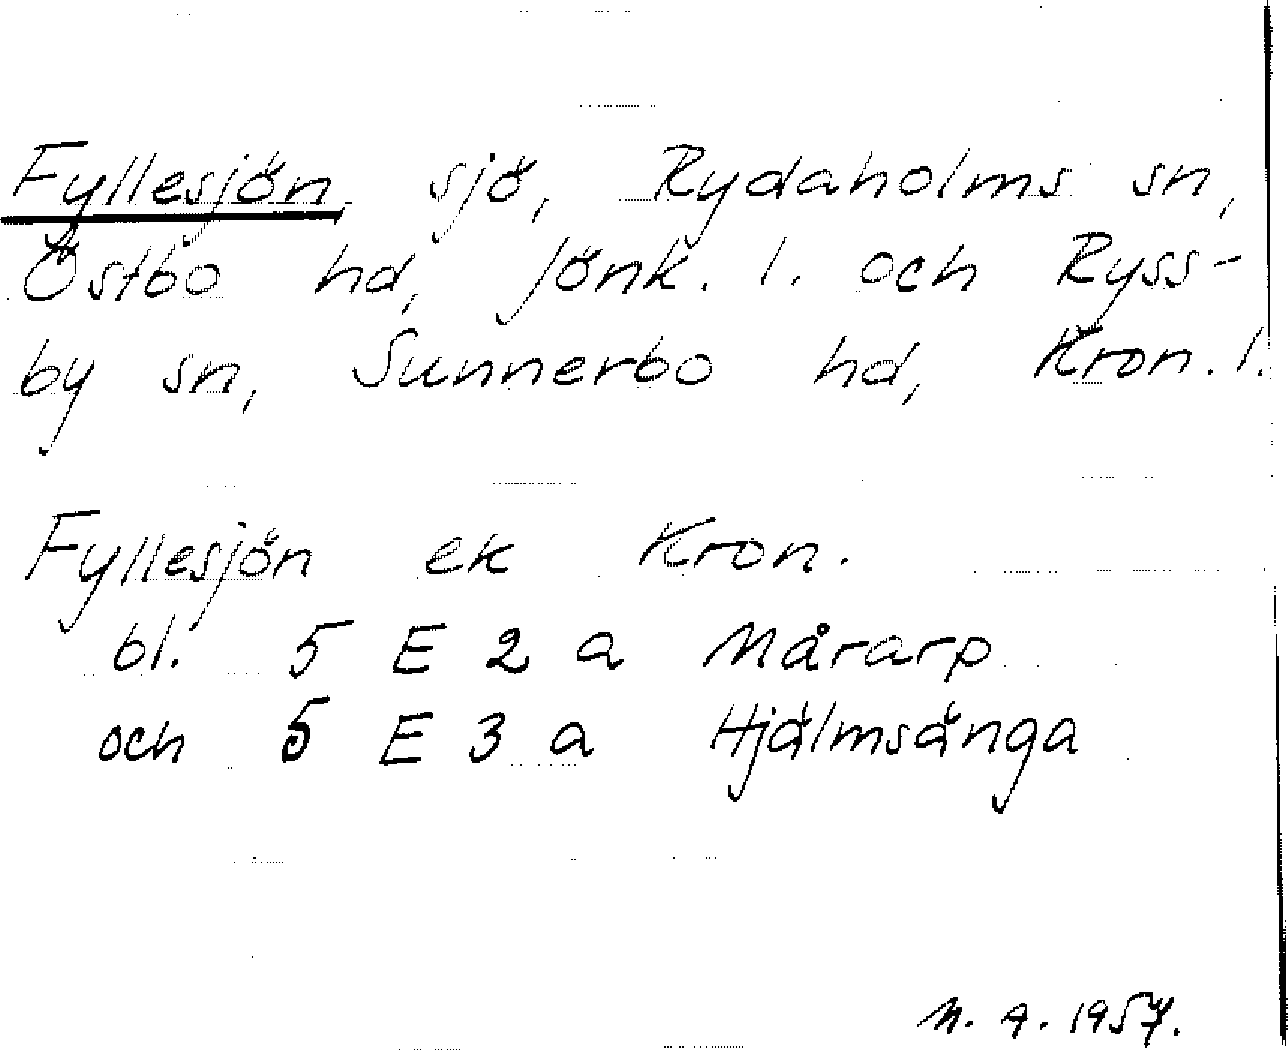 Fyllesjön sjö, Rydaholms sn,
Östbo hd, Jönk. l. och Ryss-
by sn, Sunnerbo hd, Kron. l.
Fyllesjön ek Kron.
bl. 5 E 2 a Mårarp
och 5 E 3 a Hjälmsänga
M. A. 1957.